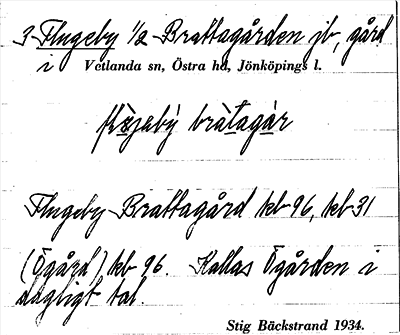 3 Flugeby 1/2 Brattagården jb, gård
i Vetlanda sn, Östra hd, Jönköpings l.
bràtagàr
Flugeby Brattagård kb 96, kb 31
(Ögård) kb 96. Kallas Ögården i
dagligt tal.
Stig Bäckstrand 1934.